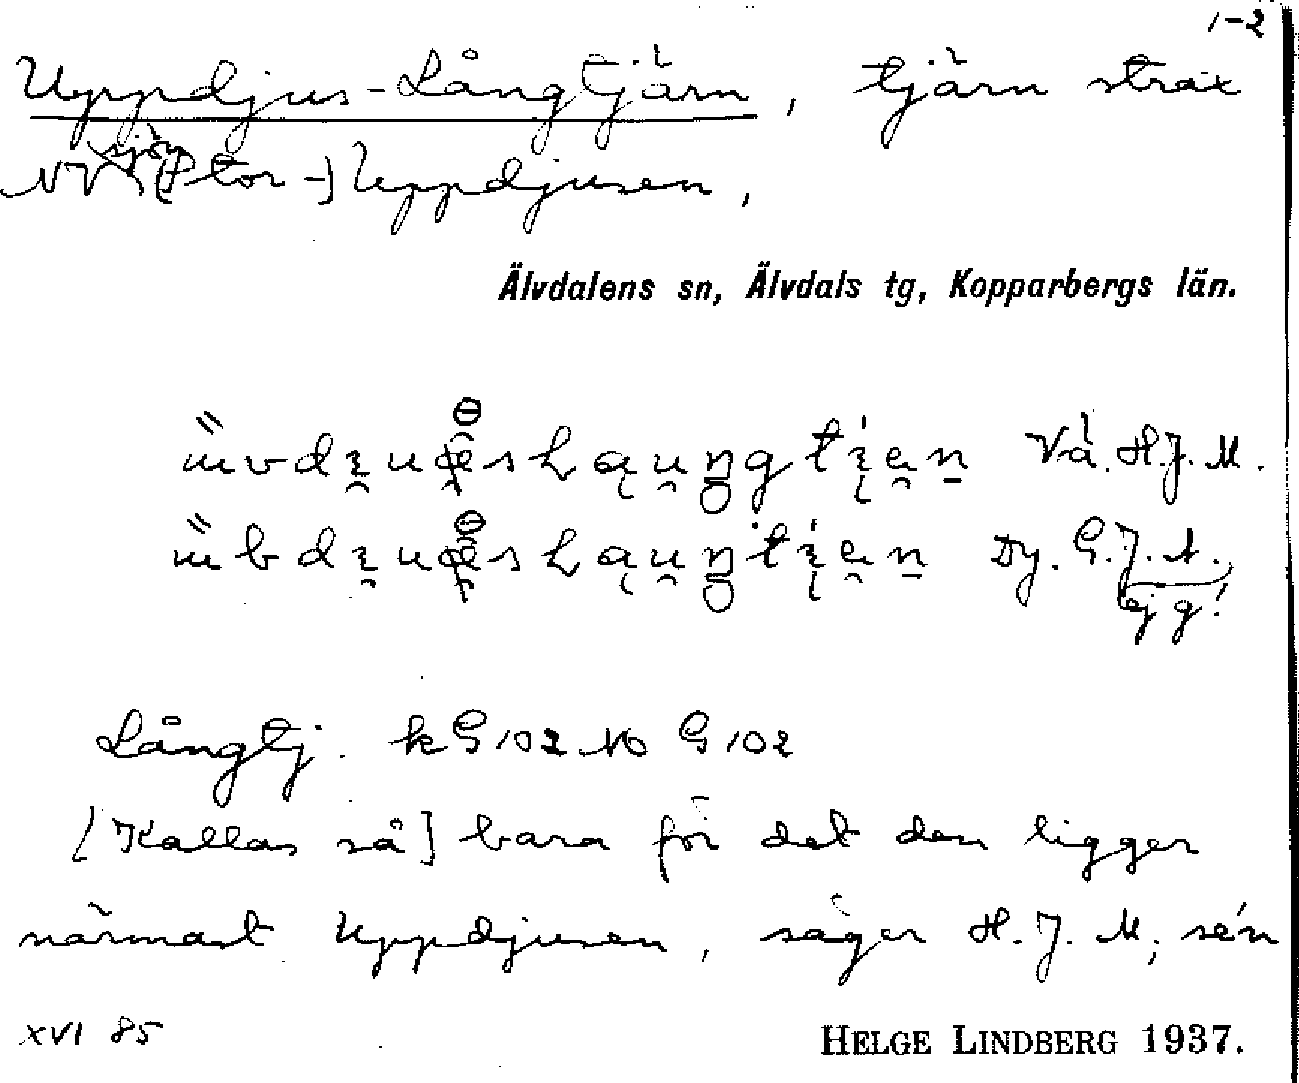 1-2
Uppdjus-Långtjärn, tjärn strax
NV sjön [Stor-]Uppdjusen,
Älvdalens sn, Älvdals tg, Kopparbergs län.
Vå. H.J.M.
Dy. G.J.A.,
ej g!
Långtj. kG102 No G102
[Kallas så] bara för det den ligger
närmast Uppdjusen, säger H.J.M; sén
XVI 85
HELGE LINDBERG 1937.